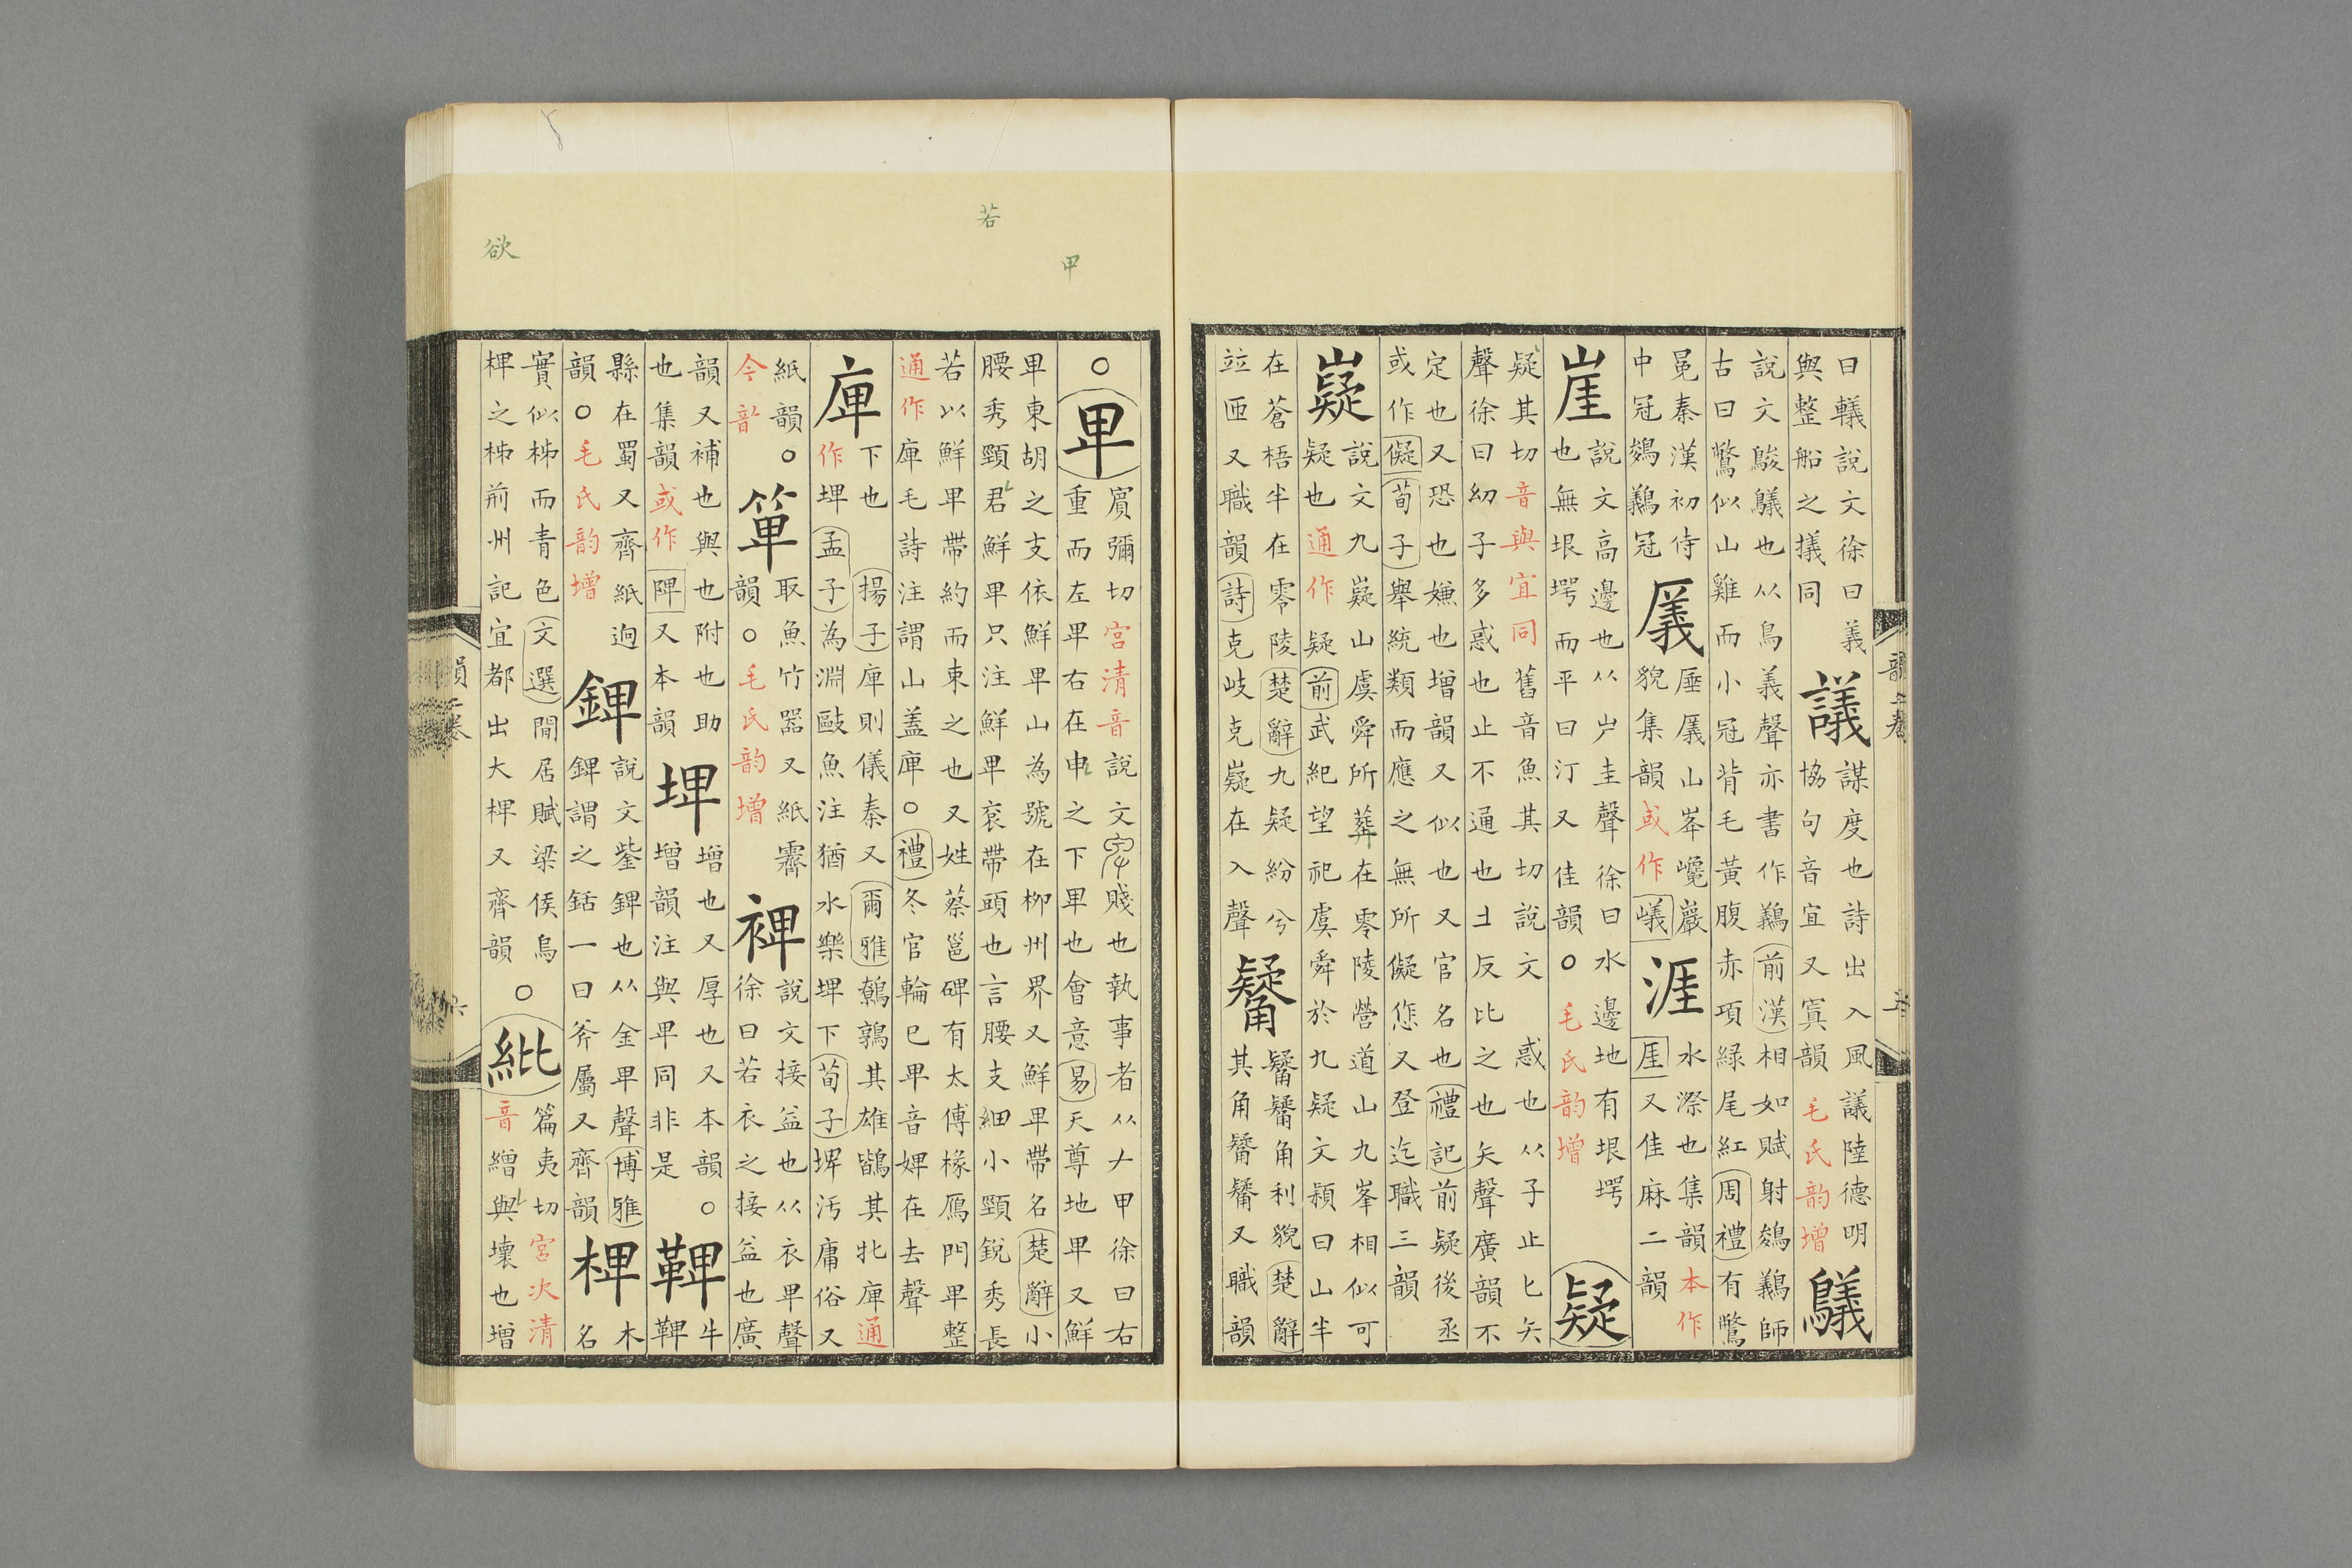 曰轙說文徐曰義
與整船之檥同
議
謀度也詩出入風議陸德明
協句音宜又寘韻毛氏韵增
鸃
說文鵔鸃也从鳥義聲亦書作䴊前漢相如賦射鵔䴊師
古曰鷩似山雞而小冠背毛黃腹赤項綠尾紅周禮有鷩
冕秦漢初侍
中冠鵔䴊冠
㕒
㕒山峯巉巖
貌集韻或作嶬
涯
水際也集韻本作
厓又佳麻二韻
崖
說文高邊也从屵圭聲徐曰水邊地有垠堮
也無垠堮而平曰汀又佳韻○毛氏韵增
疑
疑其切音與宜同舊音魚其切說文惑也从子止匕矢
聲徐曰幼子多惑也止不通也反比之也矢聲廣韻不
定也又恐也嫌也增韻又似也又官名也禮記前疑後丞
或作儗荀子舉統類而應之無所儗又登迄職三韻
嶷
說文九嶷山虞舜所葬在零陵營道山九峯相似可
疑也通作疑前武紀望祀虞舜於九疑文穎曰山半
在蒼梧半在零陵楚辭九疑紛兮
竝迊又職韻詩克岐克嶷在入聲
觺
觺觺角利貌楚辭
其角觺觺又職韻
若
甲
欲
○卑
賔彌切宮清音說文賤也執事者从𠂇甲徐曰右
重而左卑右在甲之下卑也會意易天尊地卑又鮮
卑東胡之支依鮮卑山為號在柳州界又鮮卑帶名楚辭小
腰秀頸君鮮卑只注鮮卑衮帶頭也言腰支細小頸銳秀長
若以鮮卑帶約而束之也又姓蔡邕碑有太傅椽鴈門卑整
通作庳毛詩注謂山蓋庳○禮冬官輪巳卑音婢在去聲
庳
下也揚子庳則儀秦又爾雅鷯鶉其雄鶛其牝庳通
作埤孟子為淵敺魚注猶水樂埤下荀子埤汚庸俗又
紙韻○
今韵
箄
取魚竹器又紙霽
韻○毛氏韵增
裨
說文接益也从衣卑聲
徐曰若衣之接益也廣
韻又補也與也附也助
也集韻或作陴又本韻
埤
增也又厚也又本韻○
增韻注與卑同非是
鞞
牛
鞞
縣在蜀又齊紙逈
韻○毛氏韵增
錍
說文鈭錍也从金卑聲博雅
錍謂之銛一曰斧屬又齊韻
椑
木
名
實似柹而青色文選閒居賦梁侯烏
椑之柹荊州記宜都出大椑又齊韻
○紕
篇夷切宮次清
音繒與壞也增